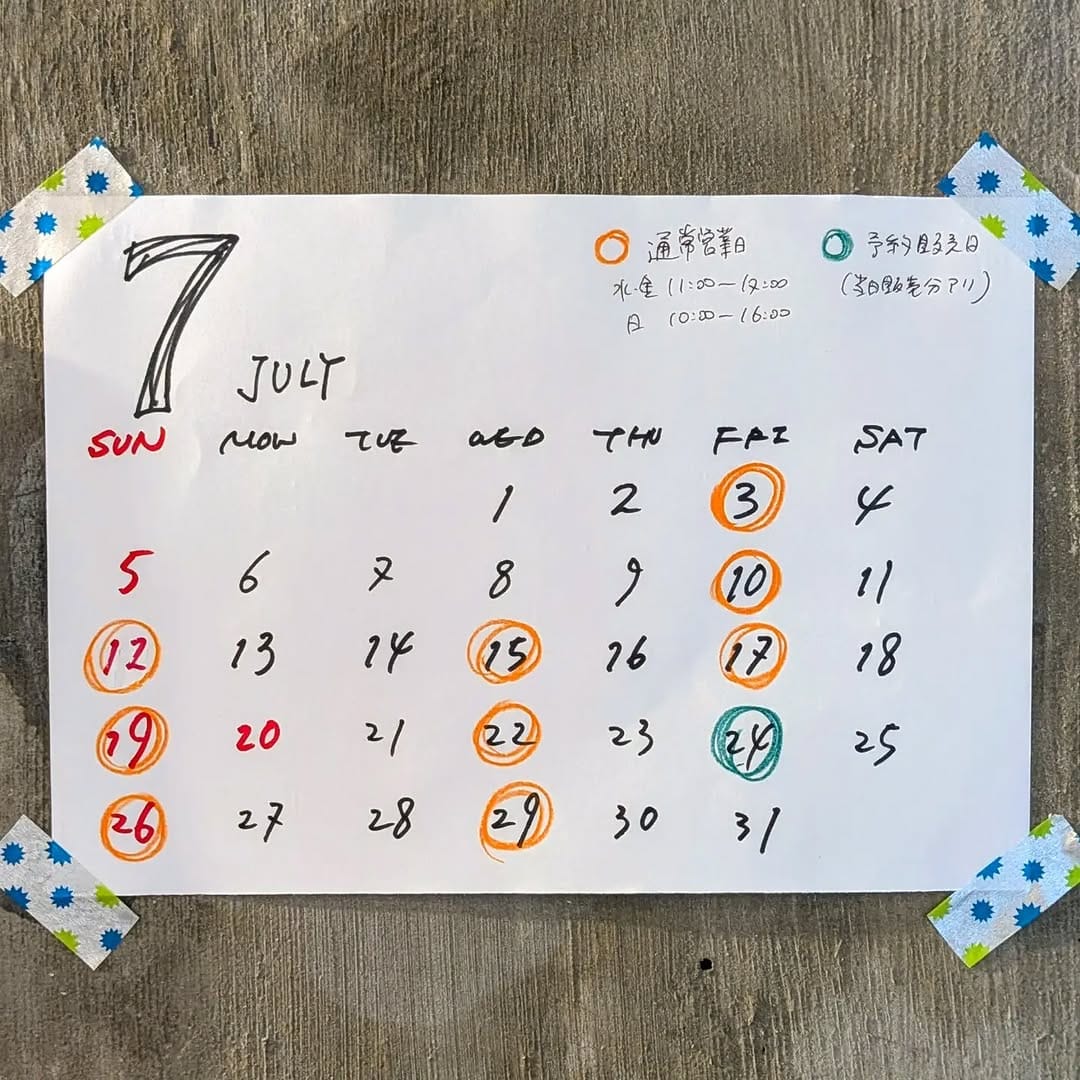 7
JULY
通常営業日
水・金 11:00〜17:00
日 10:00〜16:00
予約販売日
(当日販売分アリ)
SUN MON TUE WED THU FRI SAT
1 2 3 4
5 6 7 8 9 10 11
12 13 14 15 16 17 18
19 20 21 22 23 24 25
26 27 28 29 30 31